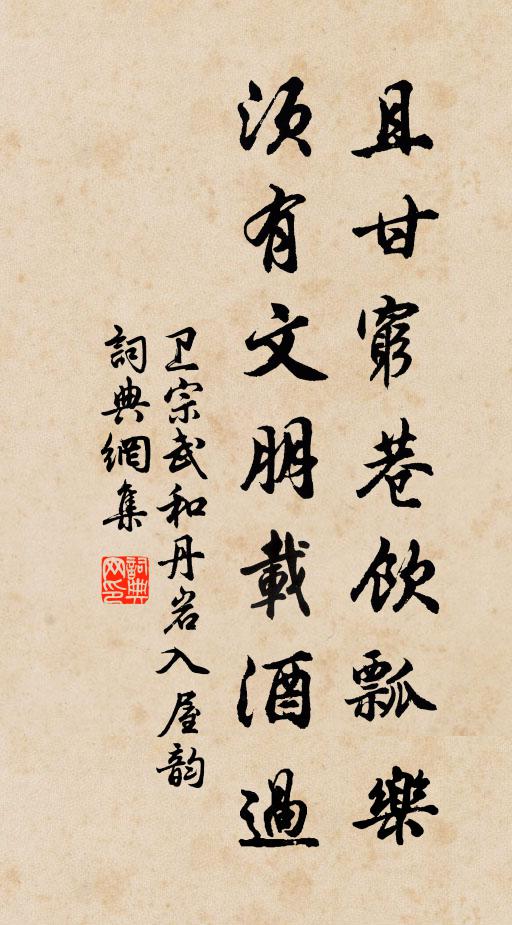 且甘窮巷飲瓢樂
須有文朋載酒過
卫宗武和丹岩入屋韵
詞典網集
詞典网印